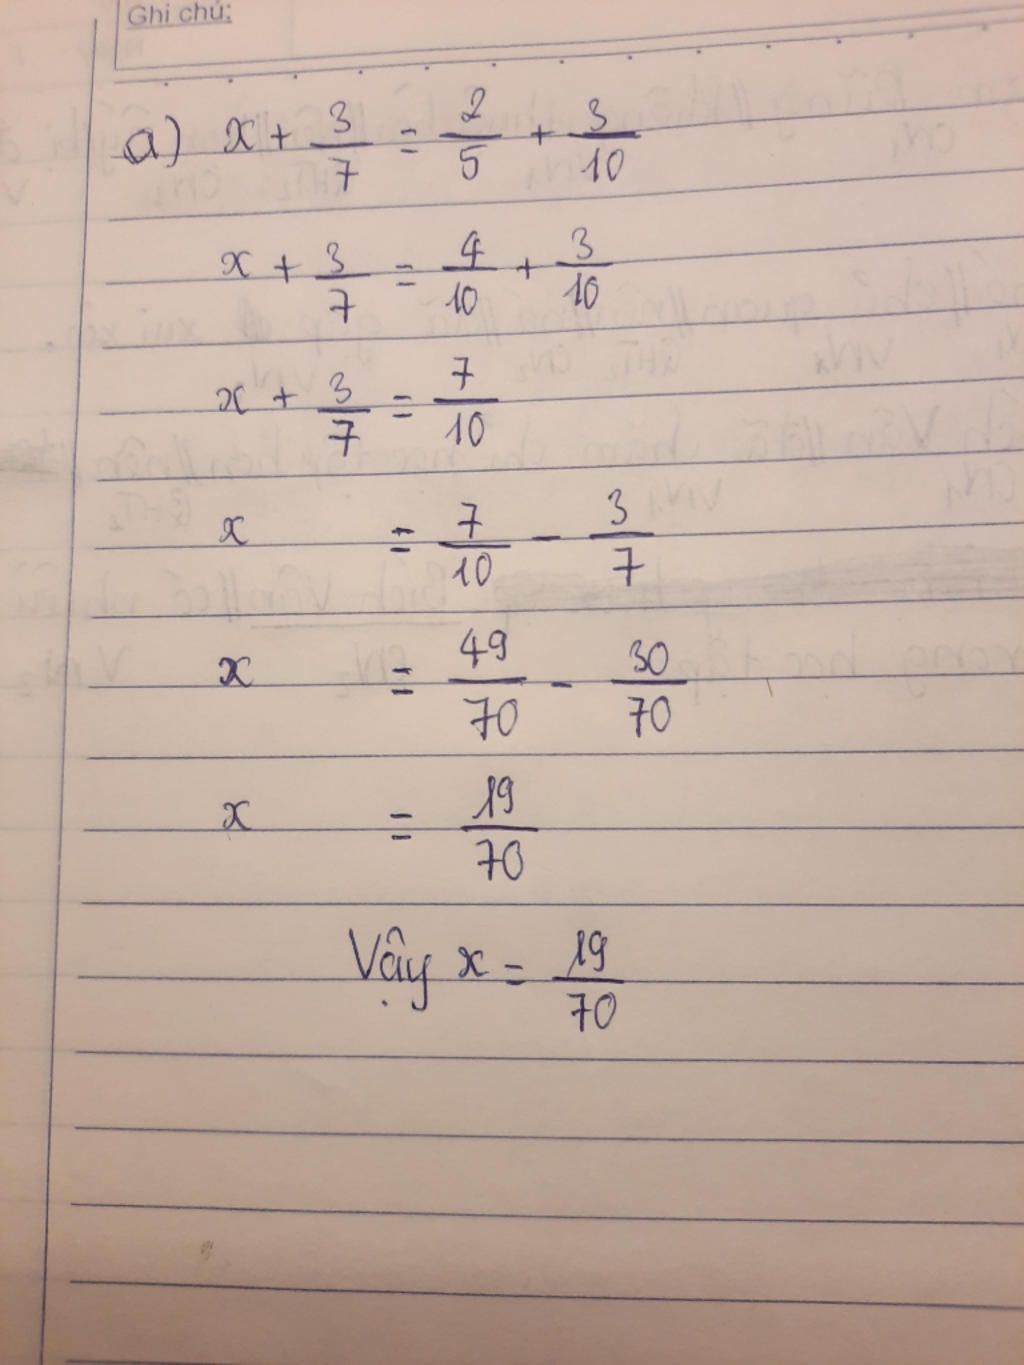 Ghi chú:
a) x + 3/7 = 2/5 + 3/10
x + 3/7 = 4/10 + 3/10
x + 3/7 = 7/10
x = 7/10 - 3/7
x = 49/70 - 30/70
x = 19/70
Vậy x = 19/70